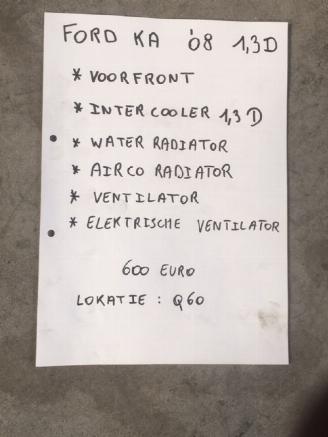 FORD KA '08 1,3D
* VOORFRONT
* INTERCOOLER 1,3 D
* WATER RADIATOR
* AIRCO RADIATOR
* VENTILATOR
* ELEKTRISCHE VENTILATOR
600 EURO
LOKATIE : Q60